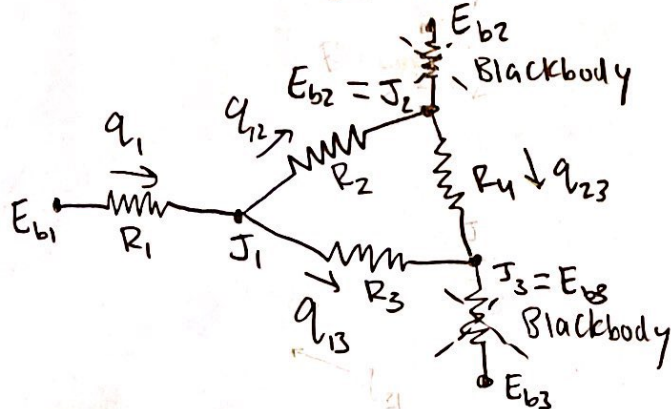 E_b2
Blackbody
E_b2 = J_2
q_1
q_12
R_2
R_4
q_23
E_b1
R_1
J_1
R_3
q_13
J_3 = E_b3
Blackbody
E_b3